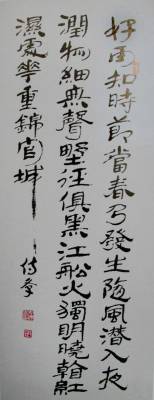 好雨知時節當春乃發生隨風潛入夜
潤物細無聲埜徑俱黑江船火獨明曉看紅
濕處華重錦官城